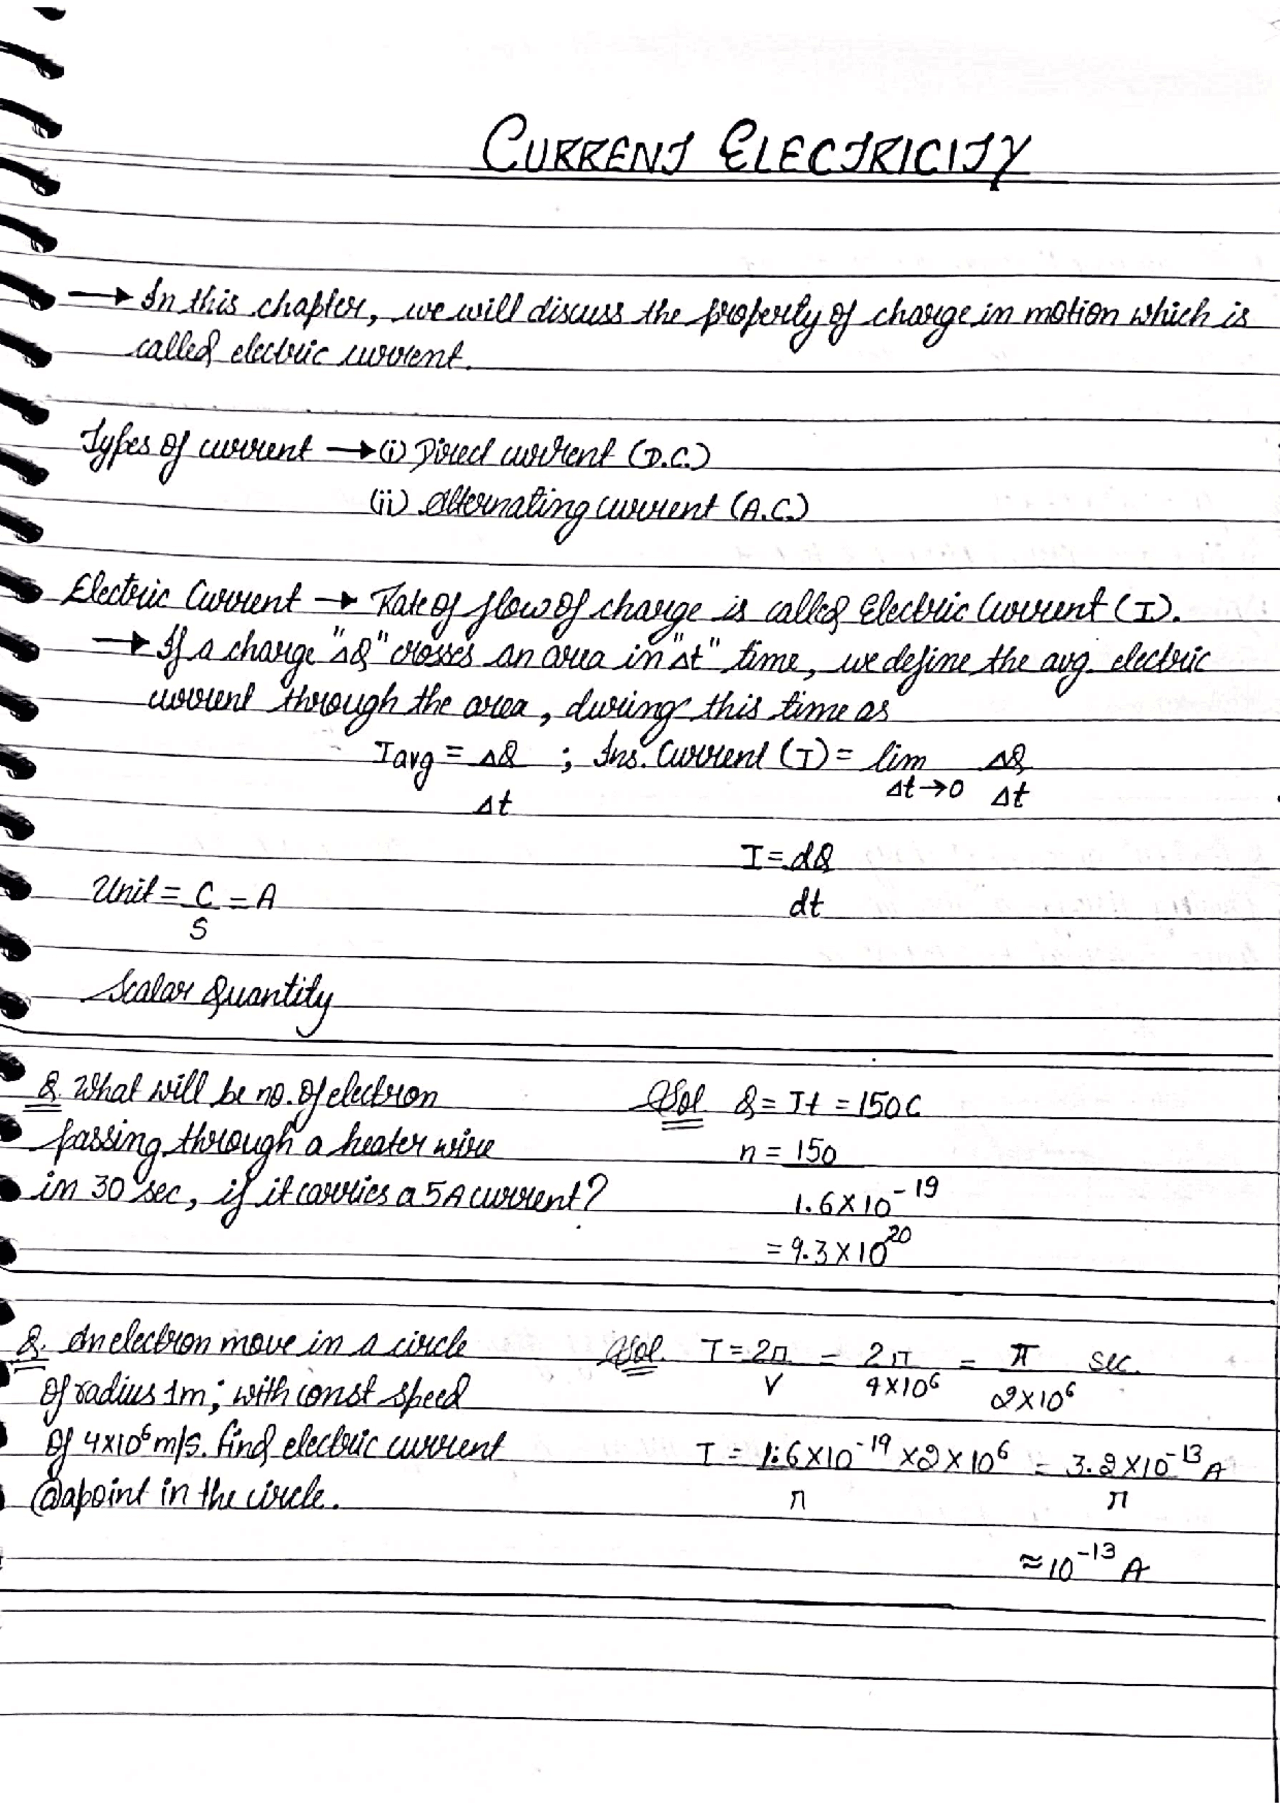 CURRENT ELECTRICITY
→ In this chapter, we will discuss the property of charge in motion which is
called electric current.
Types of current → (i) Direct current (D.C.)
(ii) Alternating current (A.C.)
Electric Current → Rate of flow of charge is called Electric Current (I).
→ If a charge "ΔQ" crosses an area in "Δt" time, we define the avg. electric
current through the area, during this time as
Iavg = ΔQ/Δt ; Ins. Current (I) = lim Δt→0 ΔQ/Δt
I = dQ/dt
Unit = C/S = A
Scalar Quantity
Q. What will be no. of electron
passing through a heater wire
in 30 sec, if it carries a 5A current?
Sol Q = It = 150C
n = 150/1.6×10⁻¹⁹
= 9.3×10²⁰
Q. An electron move in a circle
of radius 1m; with const speed
of 4×10⁶ m/s. find electric current
@ a point in the circle.
Sol. T = 2π/V = 2π/4×10⁶ = π/2×10⁶ sec.
I = 1.6×10⁻¹⁹×2×10⁶/π = 3.2×10⁻¹³/π A
≈ 10⁻¹³ A